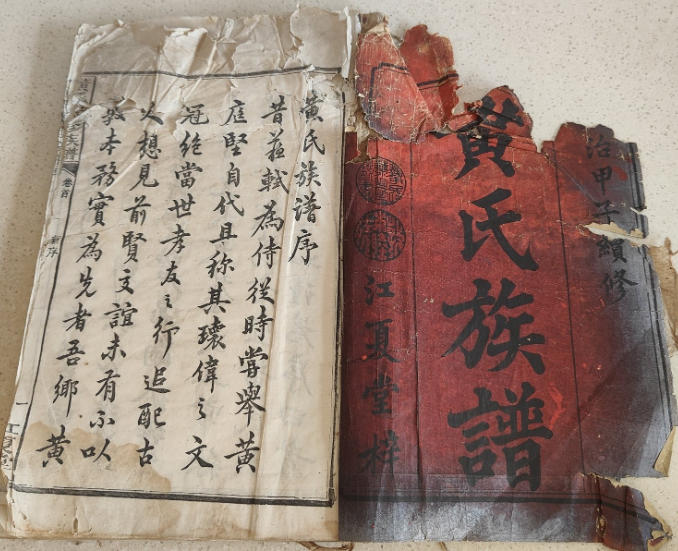 治甲子續修
黃氏族譜
江夏堂梓
黃氏族譜序
昔蘇軾為侍從時嘗舉黃
庭堅自代且稱其瓌偉之文
冠絶當世孝友之行追配古
人想見前賢文誼未有不以
敦本務實為先者吾鄉黃
氏族譜
卷首
序
一